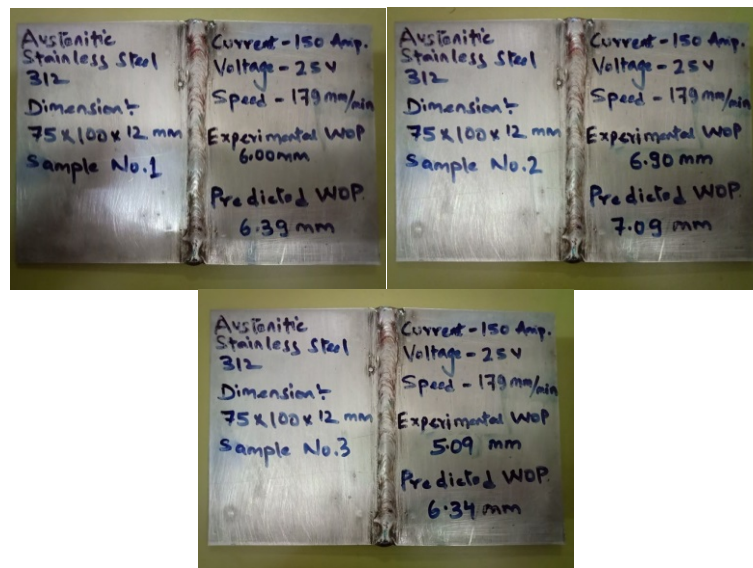 Austenitic
Stainless Steel
312
Dimension:-
75x100x12 mm
Sample No.1
Current - 150 Amp.
Voltage - 25 V
Speed - 179 mm/min
Experimental WOP
6.00mm
Predicted WOP.
6.39 mm
Austenitic
Stainless Steel
312
Dimension:-
75x100x12 mm
Sample No.2
Current - 150 Amp.
Voltage - 25 V
Speed - 179 mm/min
Experimental WOP
6.90 mm
Predicted WOP.
7.09 mm
Austenitic
Stainless Steel
312
Dimension:-
75x100x12 mm
Sample No.3
Current - 150 Amp.
Voltage - 25 V
Speed - 179 mm/min
Experimental WOP
5.09 mm
Predicted WOP.
6.34 mm